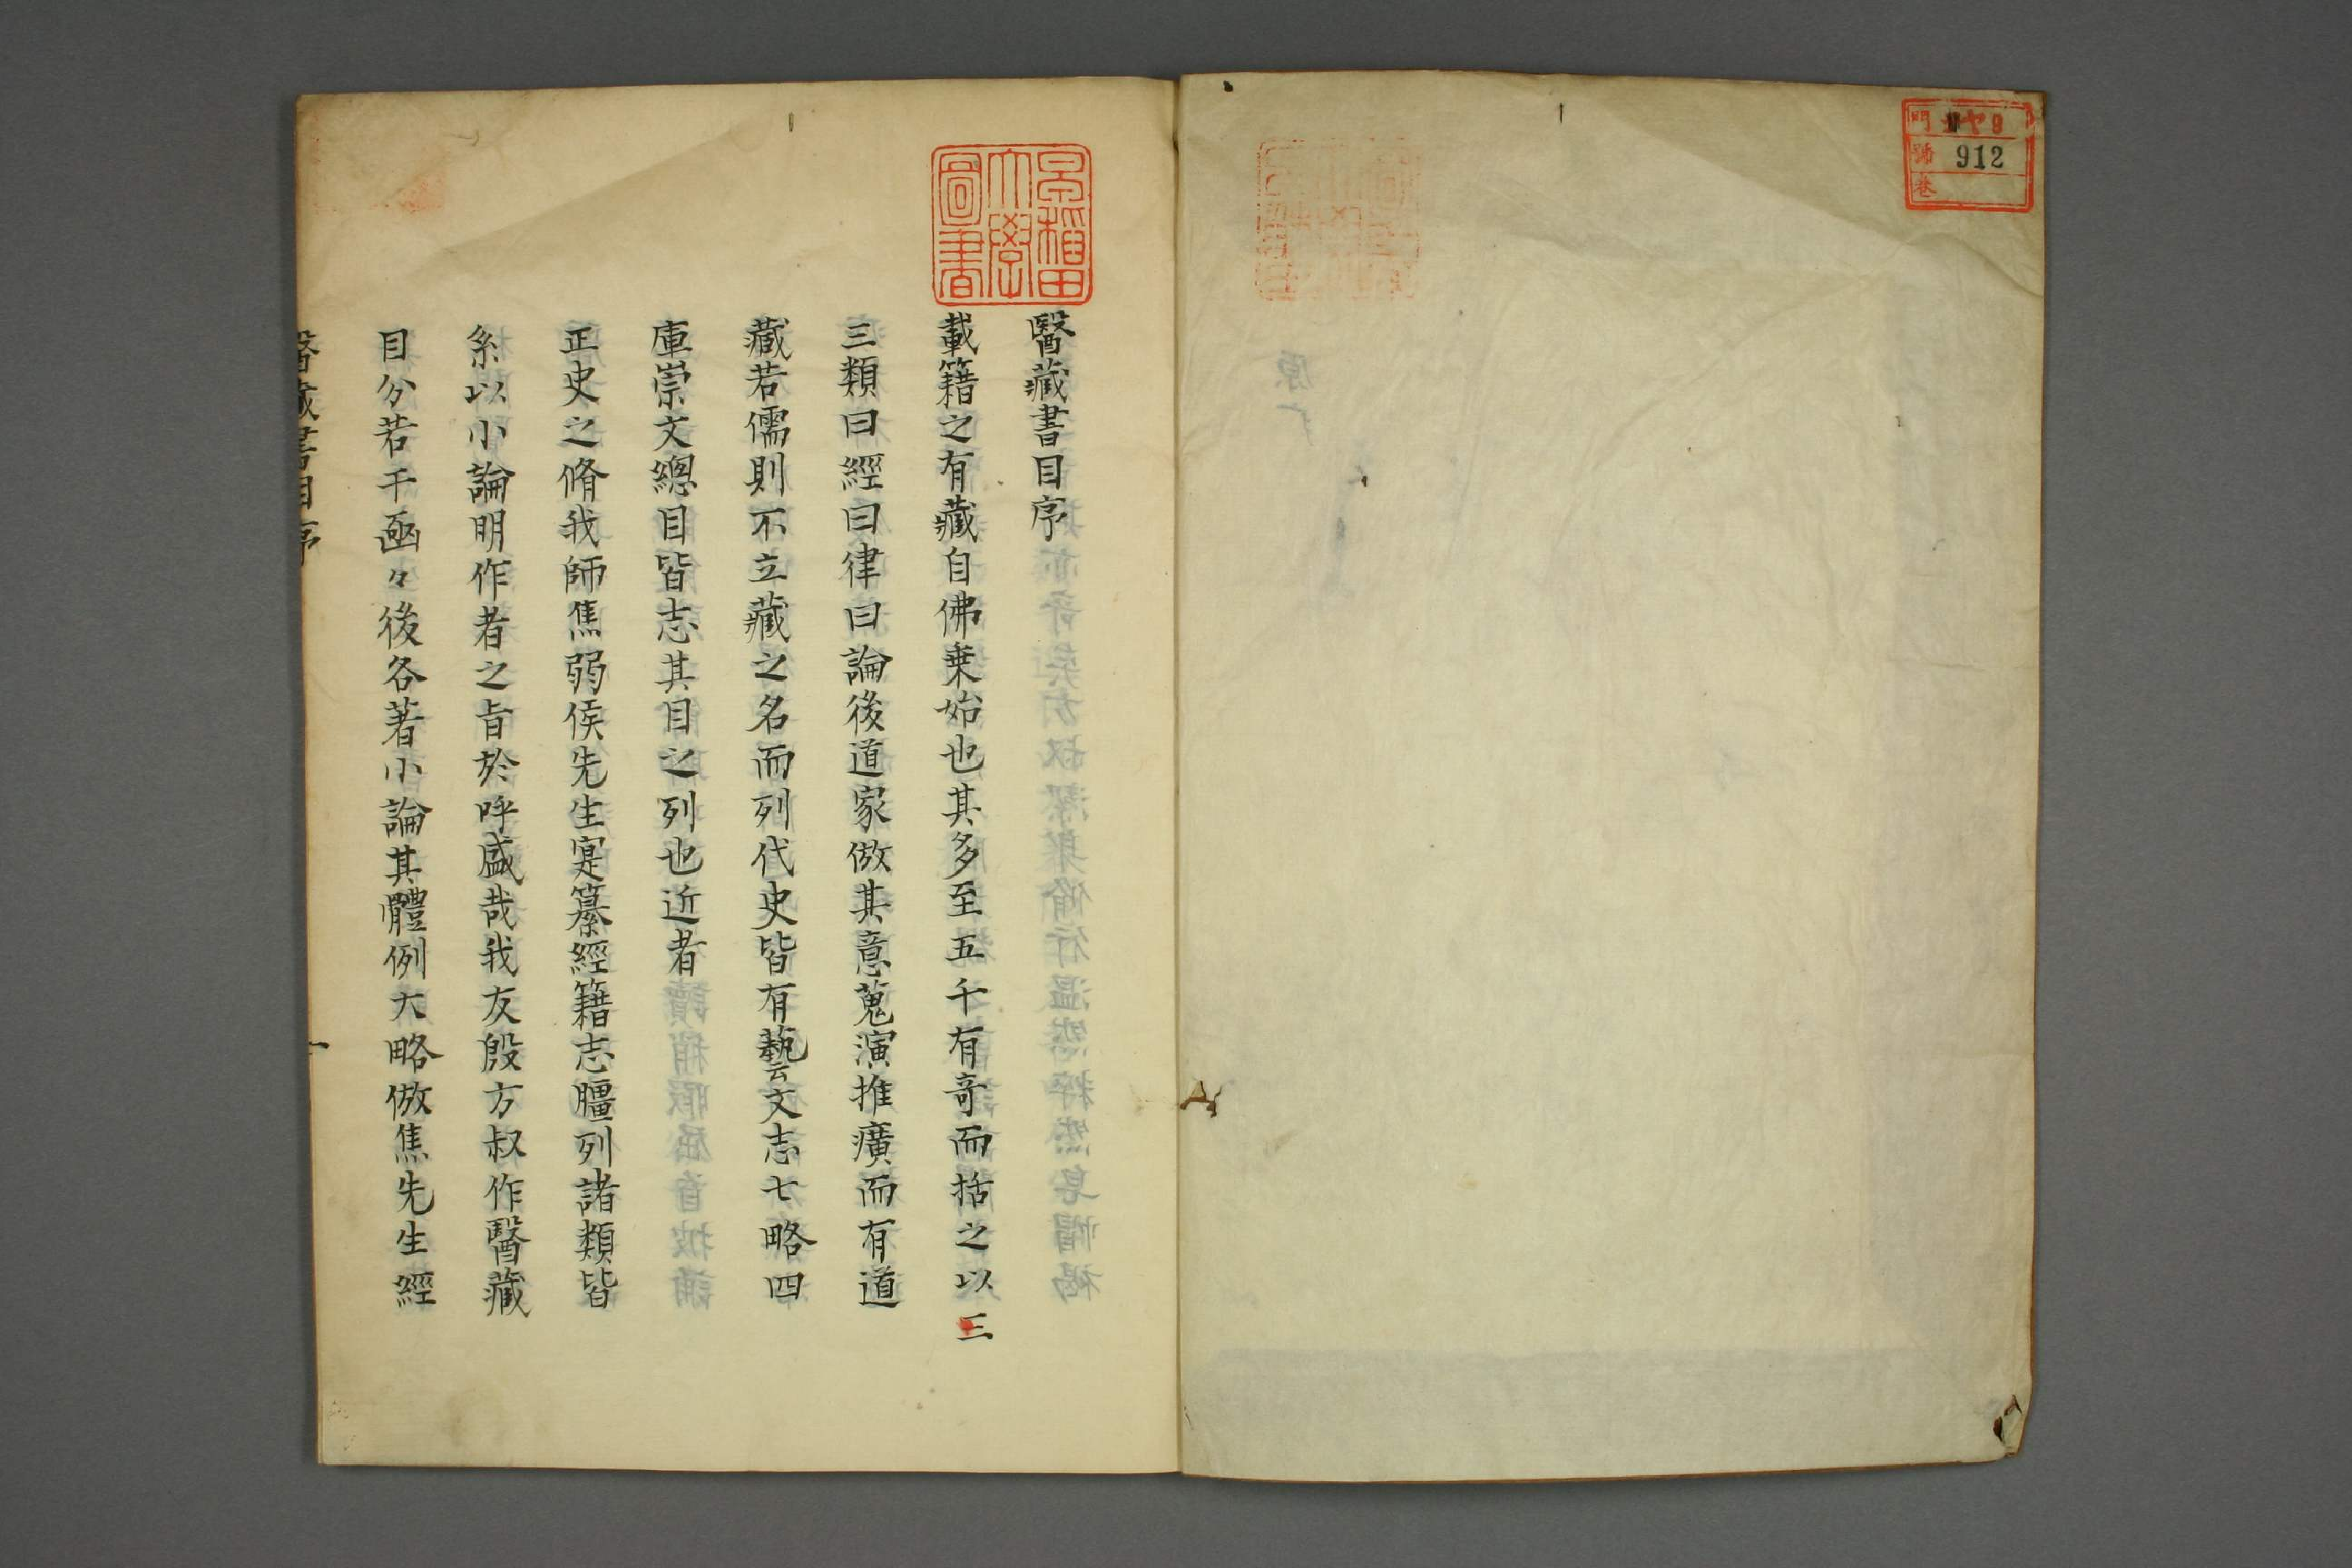 門 ヤ9
號 912
卷
早稲田大學圖書
醫藏書目序
載籍之有藏自佛乗始也其多至五千有奇而括之以三
三類曰經曰律曰論後道家倣其意蒐演推廣而有道
藏若儒則不立藏之名而列代史皆有藝文志七略四
庫崇文總目皆志其目之列也近者
正史之脩我師焦弱侯先生寔纂經籍志臚列諸類皆
系以小論明作者之旨於呼盛哉我友殷方叔作醫藏
目分若干函々後各著小論其體例大略倣焦先生經
醫藏書目序
一